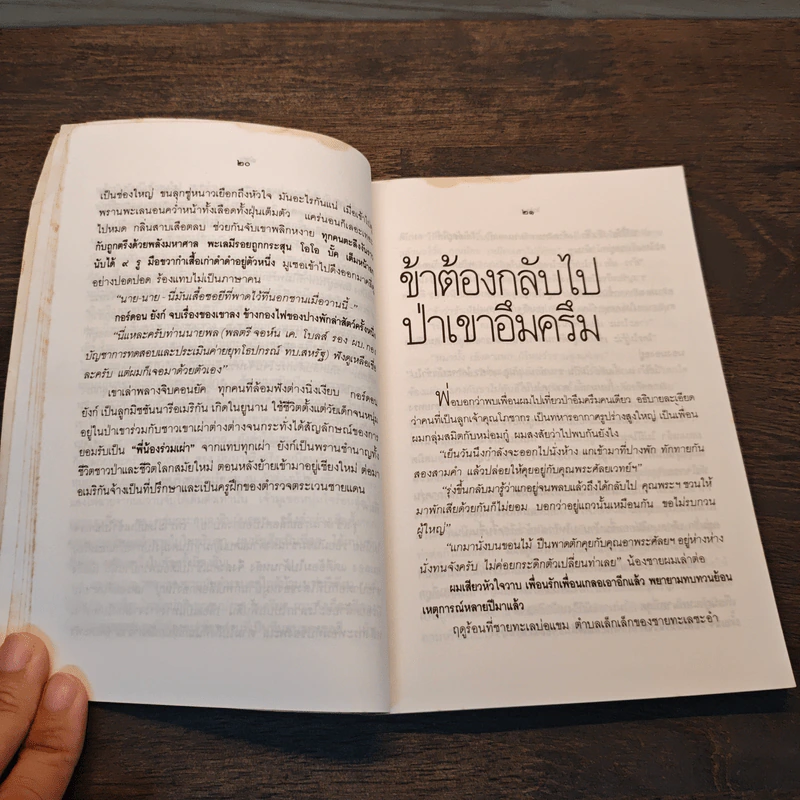 ๒๐
เป็นช่องใหญ่ ขนลุกซู่หนาวเยือกถึงหัวใจ มันอะไรกันแน่ เมื่อเข้าไป
พรานพะเลนอนคว่ำหน้าทั้งเลือดทั้งฝุ่นเต็มตัว แคร่นอนก็เลอะเทอะ
ไปหมด กลิ่นสาบเสือตลบ ช่วยกันจับเขาพลิกหงาย ทุกคนตะลึงงัน
กับถูกตรึงด้วยพลังมหาศาล พะเลมีรอยถูกกระสุน โอโอ บั๊ค เต็มหน้าอก
นับได้ ๙ รู มือขวากำเสื้อเก่าคำดำอยู่ตัวหนึ่ง มูเซอเข้าไปดึงออกมาดู
อย่างปอดปอด ร้องแทบไม่เป็นภาษาคน
"นาย-นาย - นี่มันเสื้อซอยีที่พาดไว้ที่นอกชานเมื่อวานนี้-"
กอร์ดอน ยังก์ จบเรื่องของเขาลง ข้างกองไฟของปางพักล่าสัตว์ครั้งหนึ่ง
"นี่แหละครับท่านนายพล (พลตรี จอห์น เค. โบลส์ รอง ผบ.กอง
บัญชาการทดสอบและประเมินค่ายุทโธปกรณ์ ทบ.สหรัฐ) ฟังดูเหลือเชื่อ
ละครับ แต่ผมก็เจอมาด้วยตัวเอง"
เขาเล่าพลางจิบคอนยัค ทุกคนที่ล้อมฟังต่างนิ่งเงียบ กอร์ดอน
ยังก์ เป็นลูกมิชชันนารีอเมริกัน เกิดในยูนาน ใช้ชีวิตตั้งแต่วัยเด็กจนหนุ่ม
อยู่ในป่าเขาร่วมกับชาวเขาเผ่าต่างต่างจนกระทั่งได้สัญลักษณ์ของการ
ยอมรับเป็น "พี่น้องร่วมเผ่า" จากแทบทุกเผ่า ยังก์เป็นพรานชำนาญทั้ง
ชีวิตชาวป่าและชีวิตโลกสมัยใหม่ ตอนหลังย้ายเข้ามาอยู่เชียงใหม่ ต่อมา
อเมริกันจ้างเป็นที่ปรึกษาและเป็นครูฝึกของตำรวจตระเวนชายแดน
๒๑
ข้าต้องกลับไป
ป่าเขาอึมครึม
พ่อบอกว่าพบเพื่อนผมไปเที่ยวป่าอึมครึมคนเดียว อธิบายละเอียด
ว่าคนที่เป็นลูกเจ้าคุณโภชากร เป็นทหารอากาศรูปร่างสูงใหญ่ เป็นเพื่อน
ผมกลุ่มสมิตกับหม่อมกู้ ผมสงสัยว่าไปพบกันยังไง
"เย็นวันนึงกำลังจะออกไปนั่งห้าง แกเข้ามาที่ปางพัก ทักทายกัน
สองสามคำ แล้วปล่อยให้คุยอยู่กับคุณพระศัลยเวทย์ฯ"
"รุ่งขึ้นกลับมารู้ว่าแกอยู่จนพลบแล้วถึงได้กลับไป คุณพระฯ ชวนให้
มาพักเสียด้วยกันก็ไม่ยอม บอกว่าอยู่แถวนั้นเหมือนกัน ขอไม่รบกวน
ผู้ใหญ่"
"แกมานั่งบนขอนไม้ ปืนพาดตักคุยกับคุณอาพระศัลยฯ อยู่ห่างห่าง
นั่งทนจังครับ ไม่ค่อยกระดิกตัวเปลี่ยนท่าเลย" น้องชายผมเล่าต่อ
ผมเสียวหัวใจวาบ เพื่อนรักเพื่อนเกลอเอาอีกแล้ว พยายามทบทวนย้อน
เหตุการณ์หลายปีมาแล้ว
ฤดูร้อนที่ชายทะเลบ่อแขม ตำบลเล็กเล็กของชายทะเลชะอำ